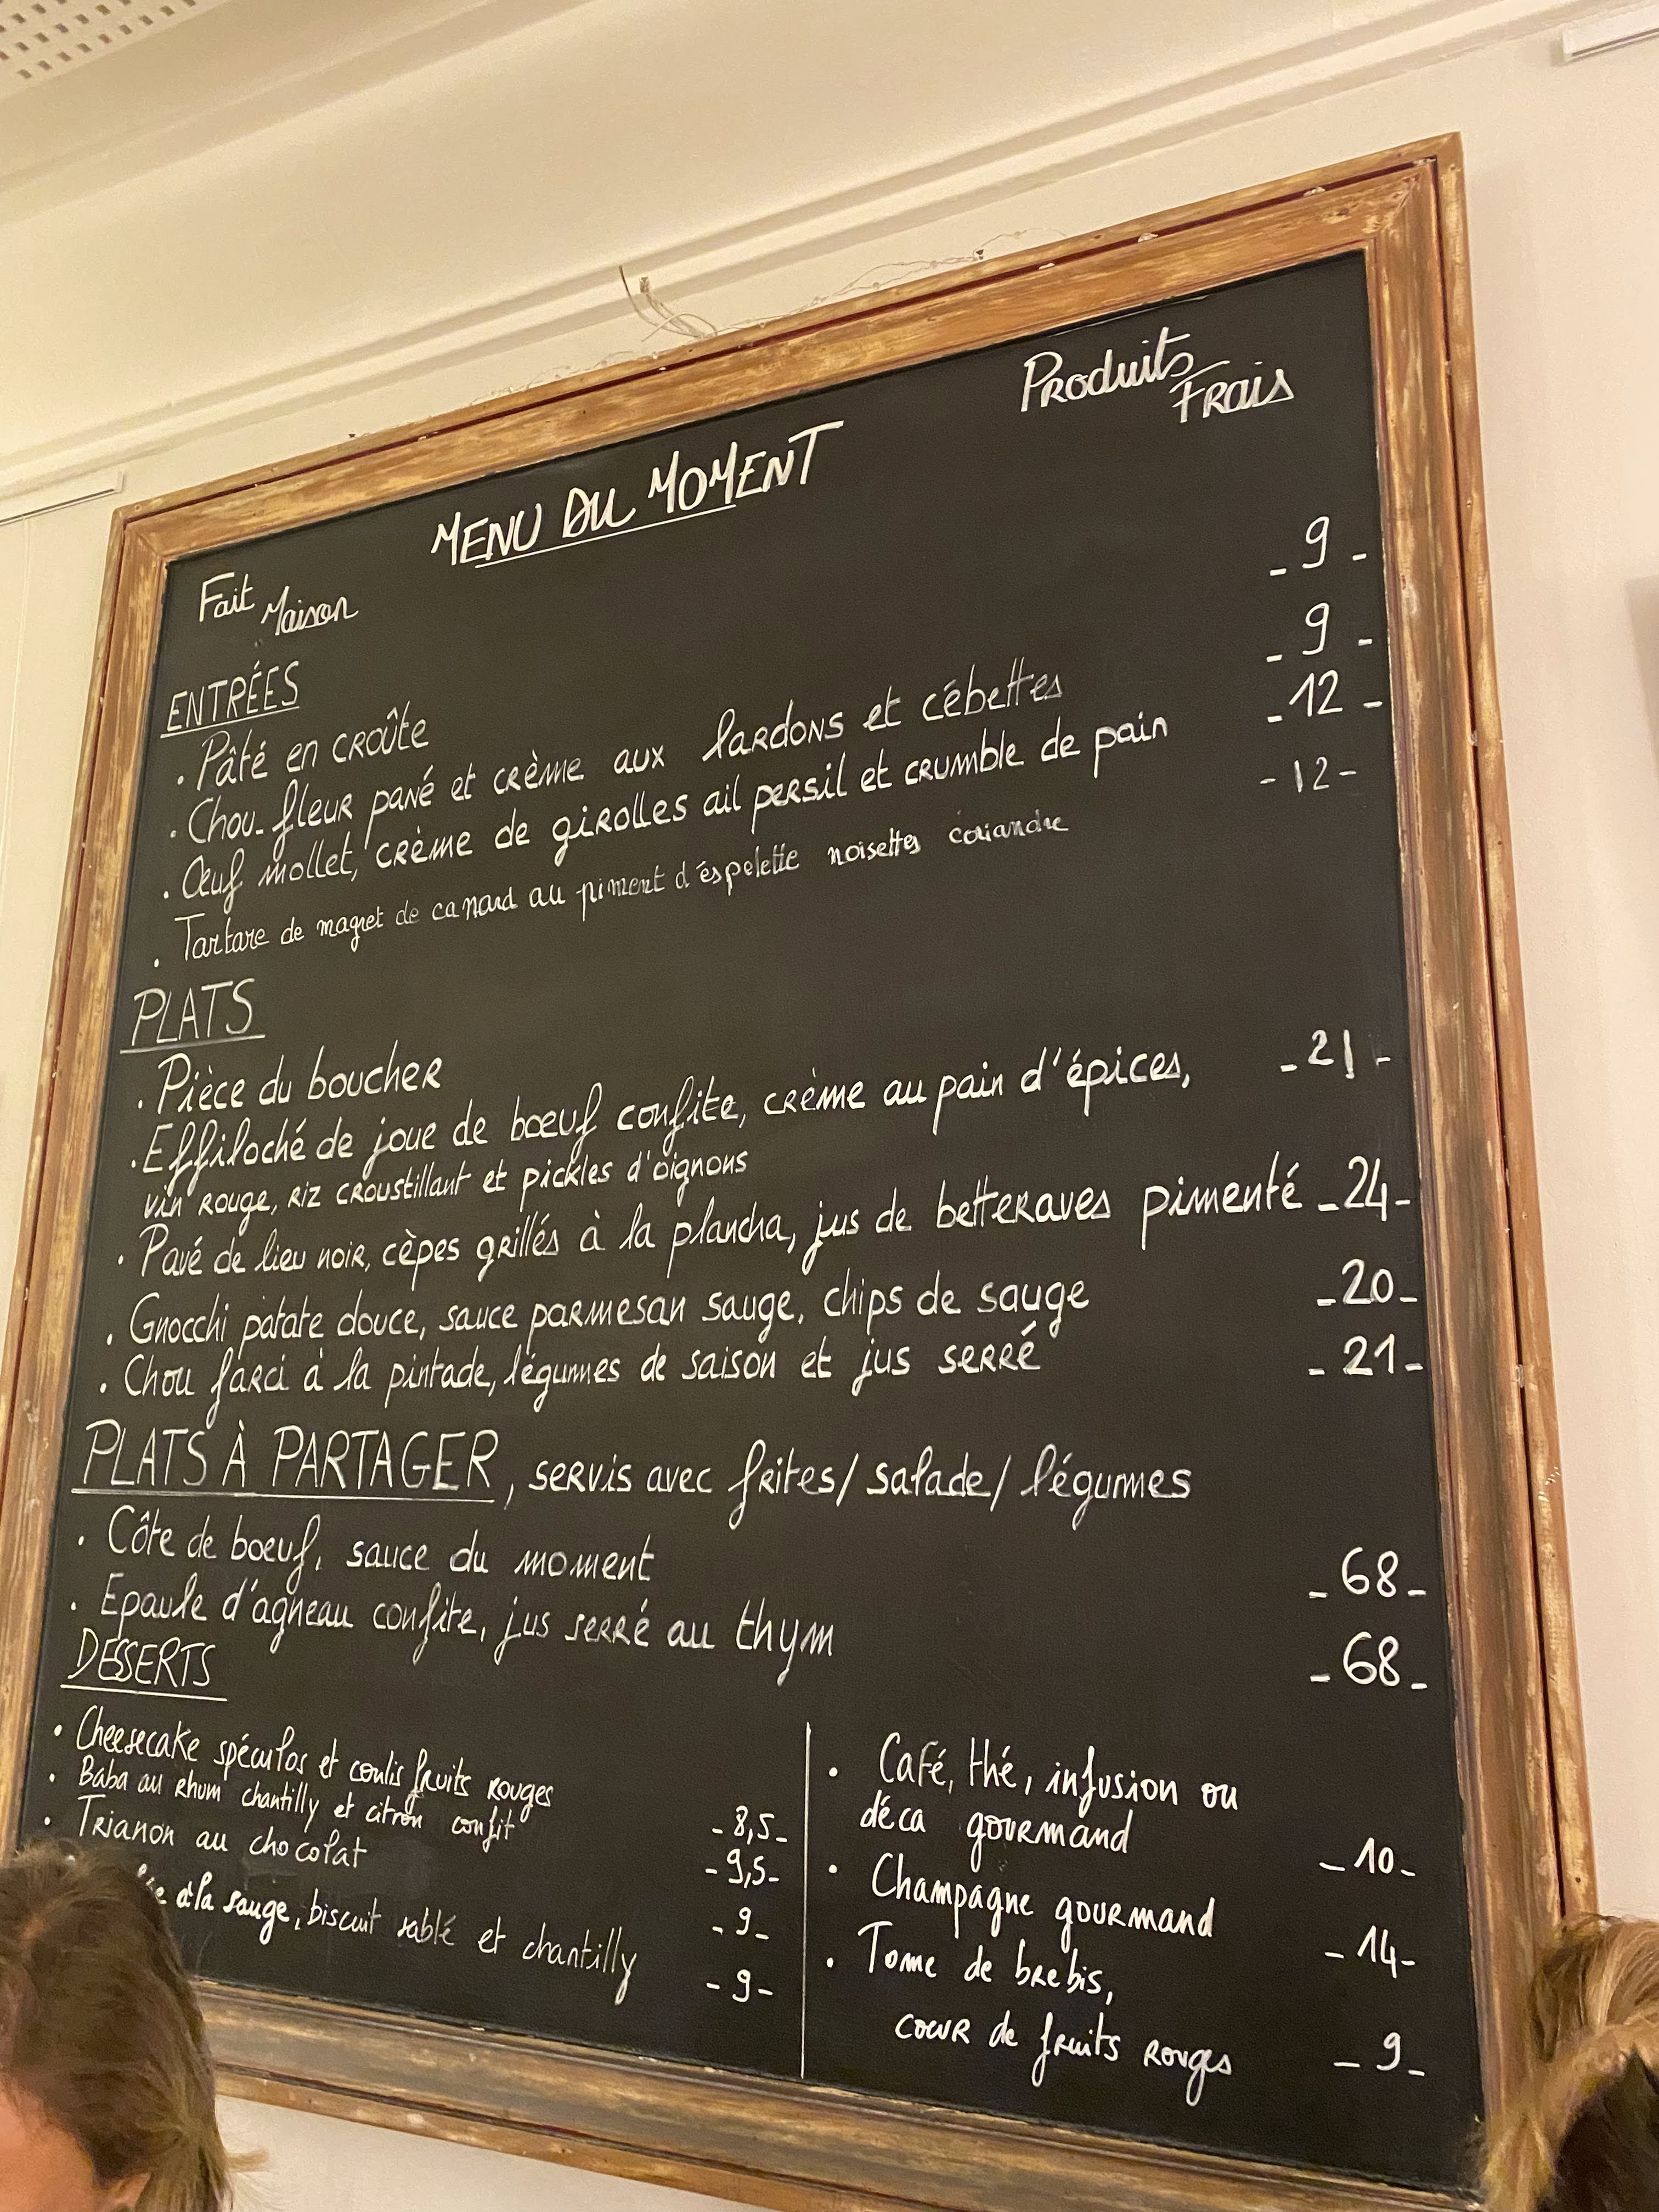 Produits
Frais
MENU DU MOMENT
Fait Maison
ENTRÉES
. Pâté en croûte - 9 -
. Chou-fleur pané et crème aux lardons et cébettes - 9 -
. Œuf mollet, crème de girolles ail persil et crumble de pain - 12 -
. Tartare de magret de canard au piment d'éspelette noisettes coriandre - 12 -
PLATS
. Pièce du boucher
. Effiloché de joue de bœuf confite, crème au pain d'épices, - 21 -
vin rouge, riz croustillant et pickles d'oignons
. Pavé de lieu noir, cèpes grillés à la plancha, jus de betteraves pimenté - 24 -
. Gnocchi patate douce, sauce parmesan sauge, chips de sauge - 20 -
. Chou farci à la pintade, légumes de saison et jus serré - 21 -
PLATS À PARTAGER, servis avec frites/ salade/ légumes
. Côte de boeuf, sauce du moment - 68 -
. Epaule d'agneau confite, jus serré au thym - 68 -
DESSERTS
. Cheesecake spéculos et coulis fruits rouges - 8,5 -
. Baba au rhum chantilly et citron confit - 9,5 -
. Trianon au chocolat - 9 -
à la sauge, biscuit sablé et chantilly - 9 -
. Café, thé, infusion ou
déca gourmand - 10 -
. Champagne gourmand - 14 -
. Tome de brebis,
cœur de fruits rouges - 9 -